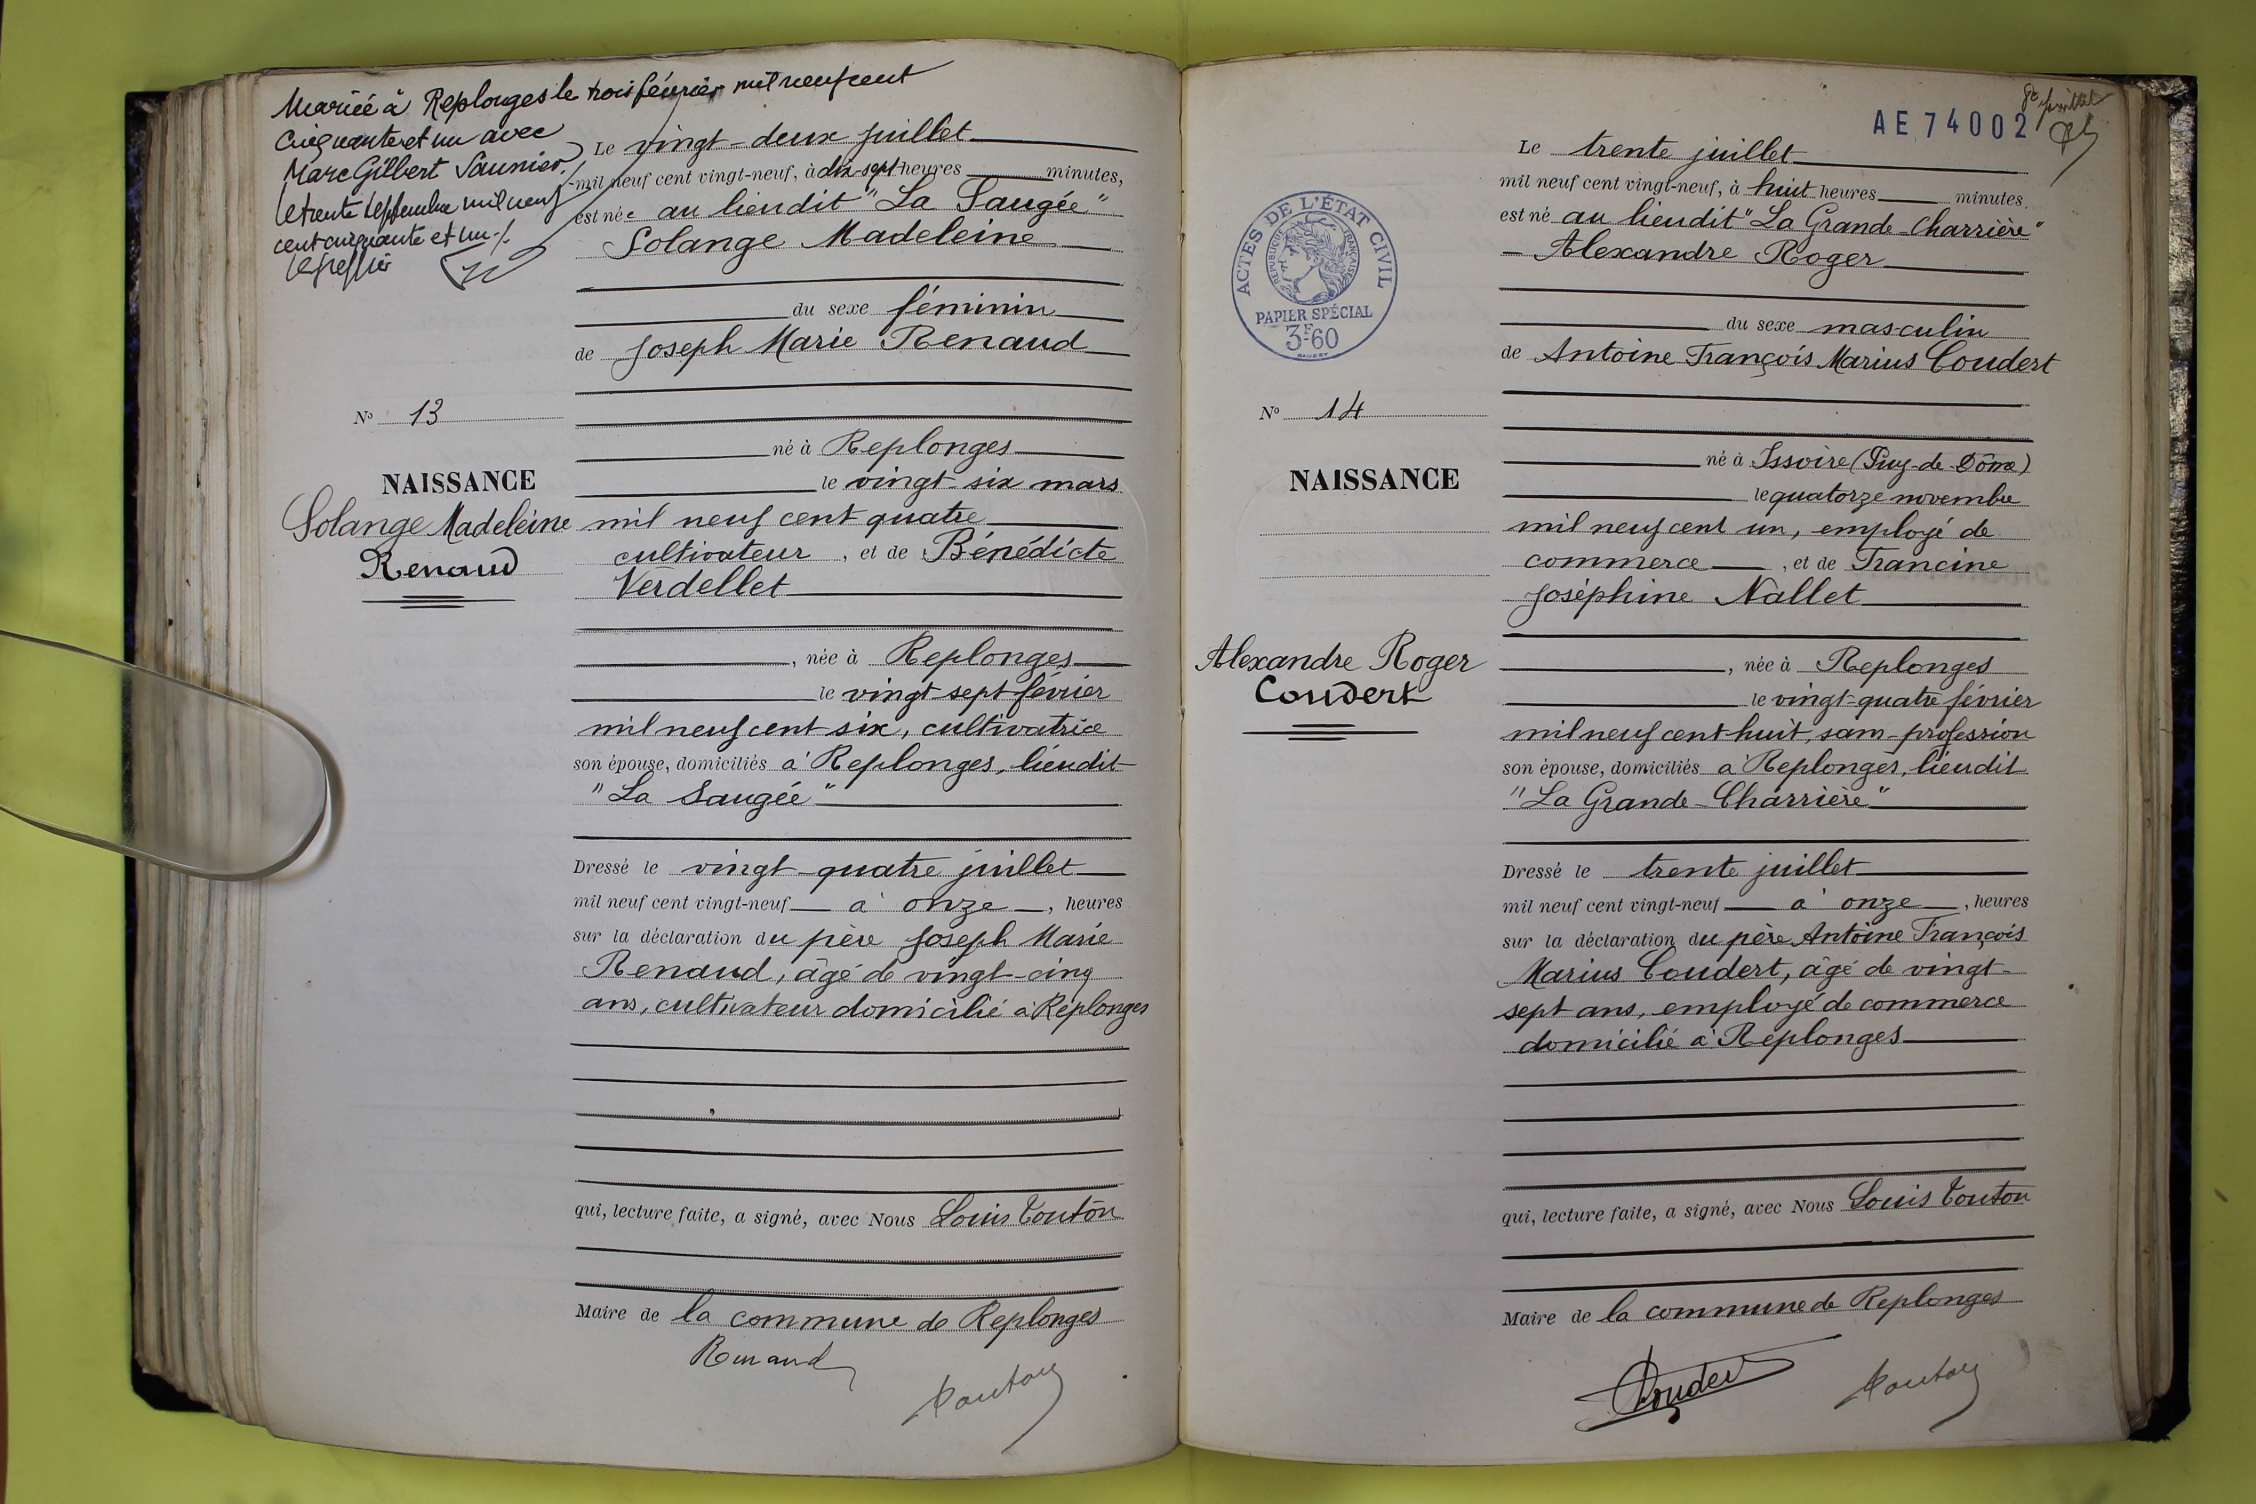 Mariée à Replonges le trois février mil neuf cent
cinquante et un avec
Marc Gilbert Saunier
le trente septembre mil neuf
cent cinquante et un ./.
le greffier
Le vingt-deux juillet
mil neuf cent vingt-neuf, à dix-sept heures minutes,
est née au lieudit "La Saugée"
Solange Madeleine
du sexe féminin
de Joseph Marie Renaud
No 13
né à Replonges
NAISSANCE
le vingt-six mars
Solange Madeleine
Renaud
mil neuf cent quatre
cultivateur, et de Bénédicte
Verdellet
, née à Replonges
le vingt-sept février
mil neuf cent six, cultivatrice
son épouse, domiciliés à Replonges, lieudit
"La Saugée"
Dressé le vingt-quatre juillet
mil neuf cent vingt-neuf à onze, heures
sur la déclaration du père Joseph Marie
Renaud, âgé de vingt-cinq
ans, cultivateur domicilié à Replonges
qui, lecture faite, a signé, avec Nous Louis Touton
Maire de la commune de Replonges
Renaud
Touton
8e feuillet
AE74002
Le trente juillet
mil neuf cent vingt-neuf, à huit heures minutes
est né au lieudit "La Grande-Charrière"
Alexandre Roger
ACTES DE L'ÉTAT CIVIL
RÉPUBLIQUE FRANÇAISE
PAPIER SPÉCIAL
3F60
du sexe masculin
de Antoine François Marius Coudert
No 14
né à Issoire (Puy-de-Dôme)
NAISSANCE
le quatorze novembre
mil neuf cent un, employé de
commerce, et de Francine
Joséphine Nallet
Alexandre Roger
Coudert
, née à Replonges
le vingt-quatre février
mil neuf cent huit, sans profession
son épouse, domiciliés à Replonges, lieudit
"La Grande-Charrière"
Dressé le trente juillet
mil neuf cent vingt-neuf à onze, heures
sur la déclaration du père Antoine François
Marius Coudert, âgé de vingt-
sept ans, employé de commerce
domicilié à Replonges
qui, lecture faite, a signé, avec Nous Louis Touton
Maire de la commune de Replonges
Coudert
Touton